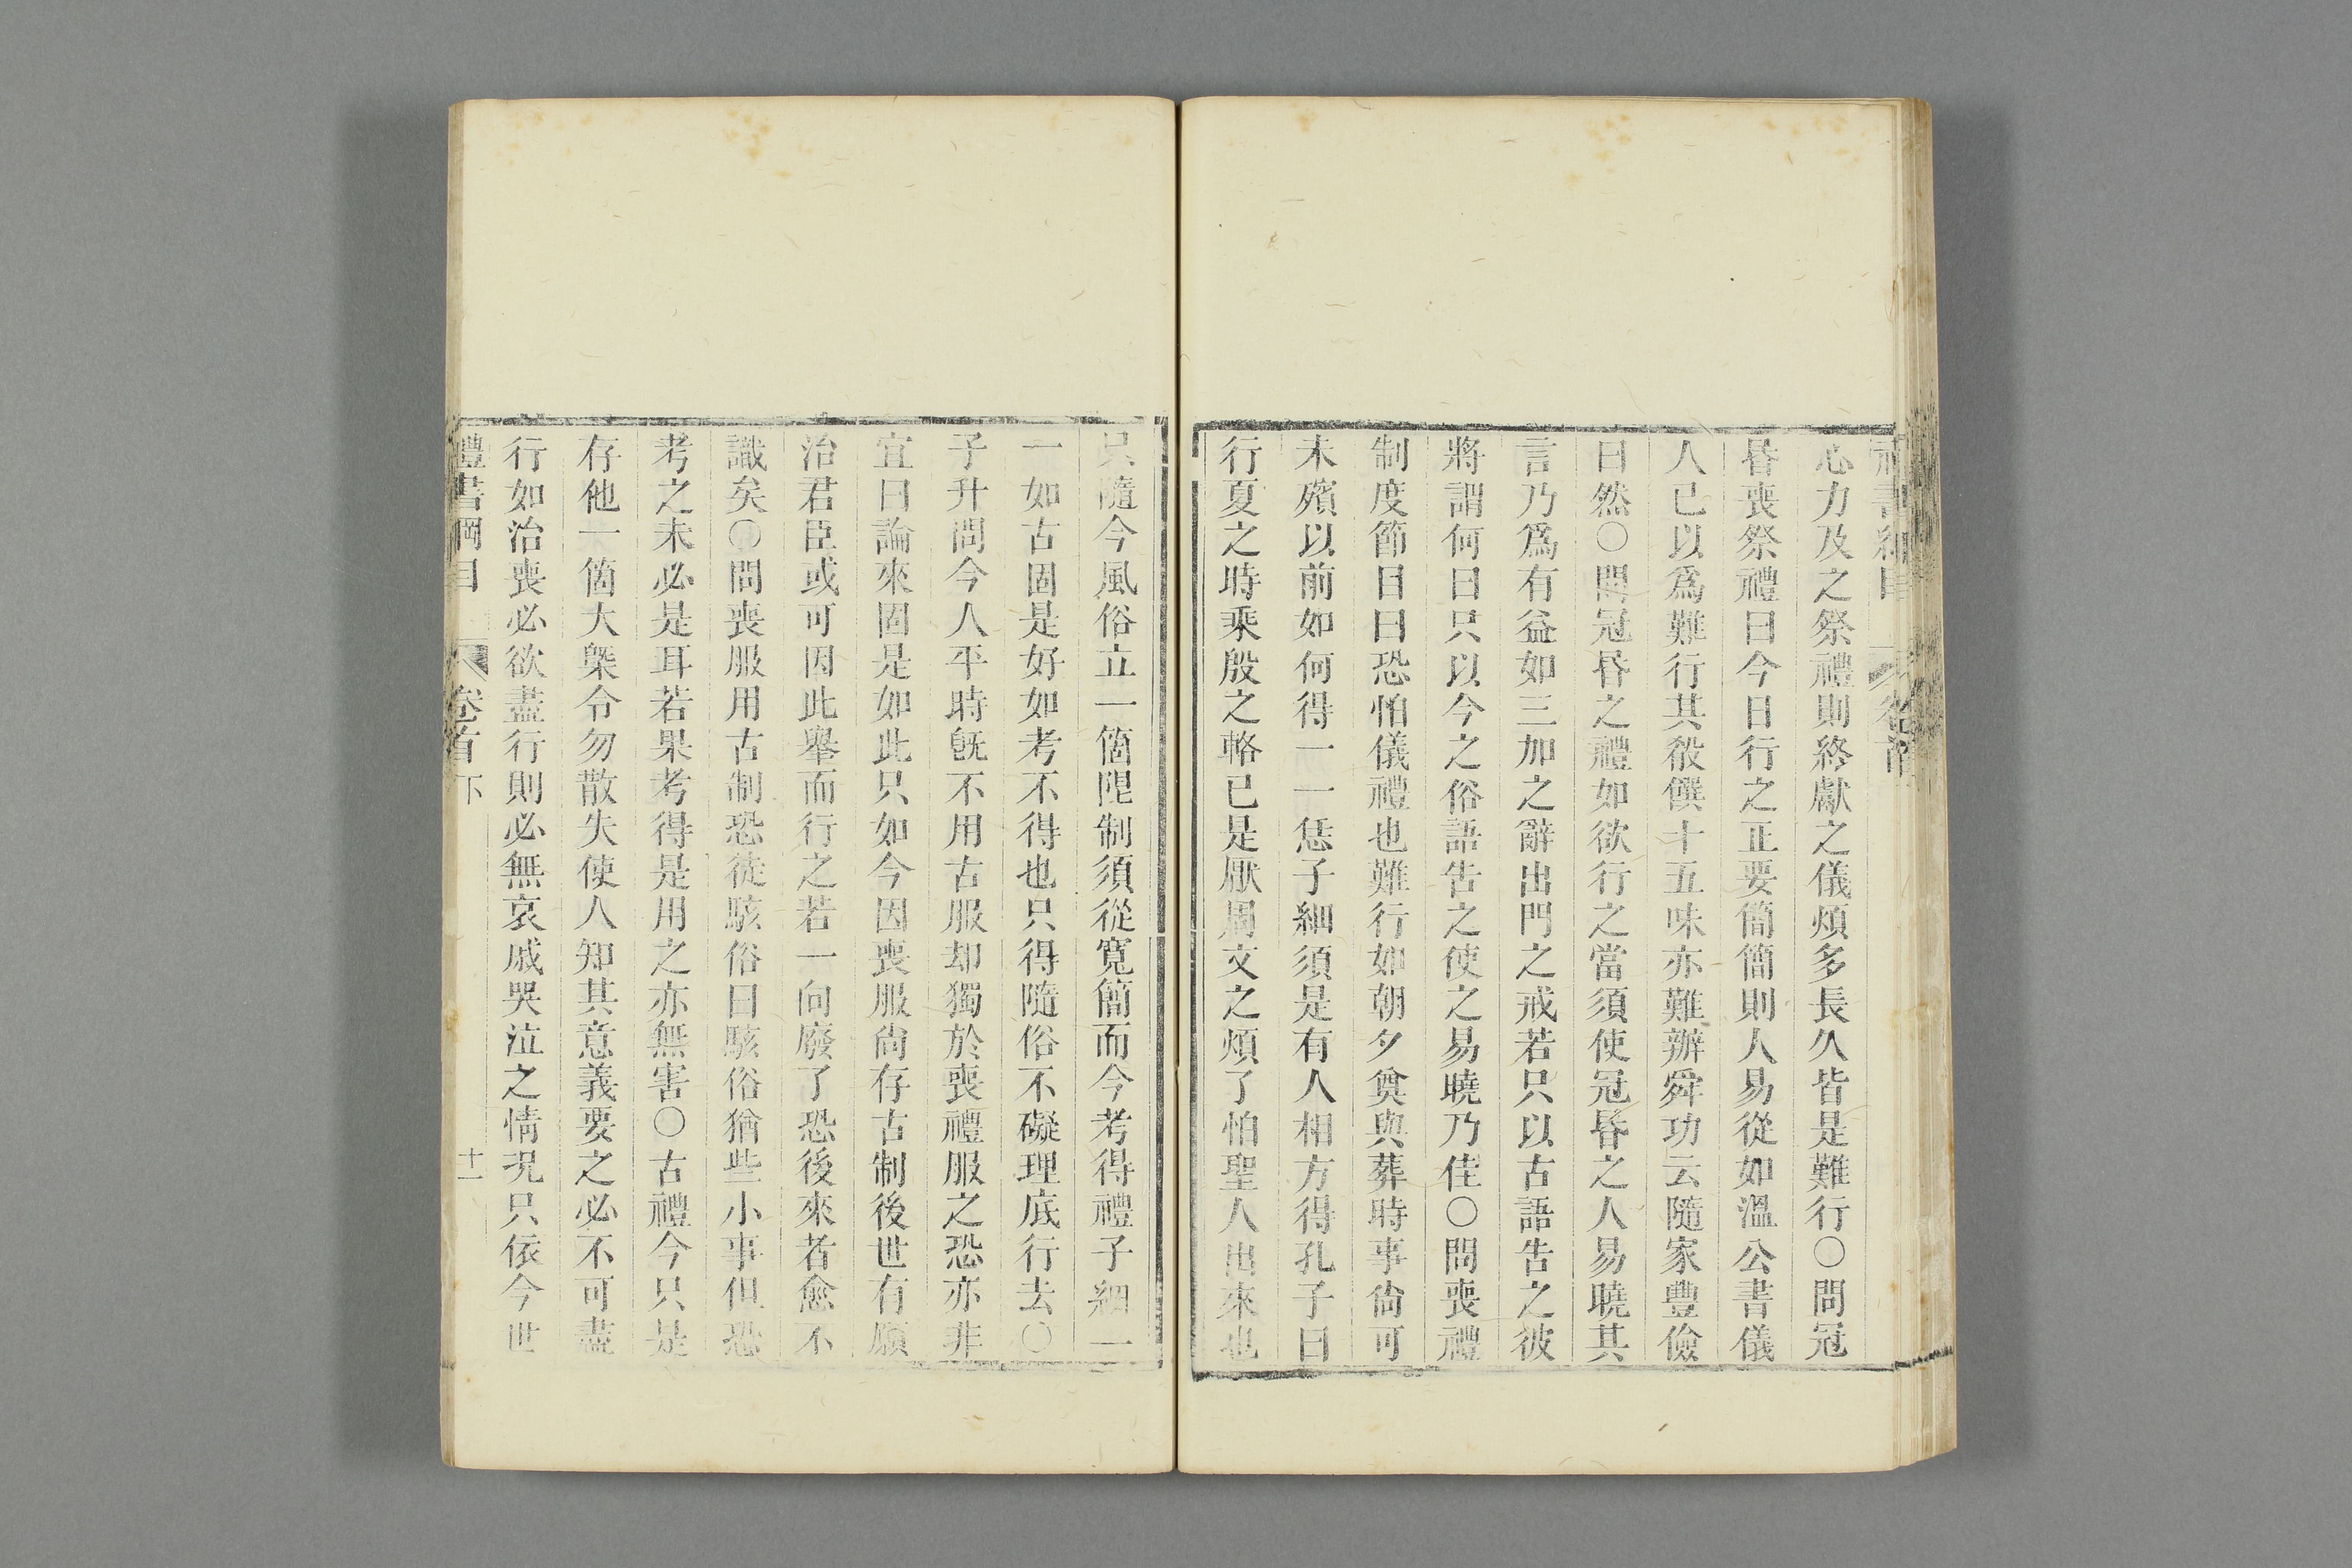 書綱目
心力及之祭禮則終獻之儀煩多長久皆是難行〇問冠
昏喪祭禮曰今日行之正要簡簡則人易從如溫公書儀
人已以爲難行其殽饌十五味亦難辦舜功云隨家豐儉
曰然〇問冠昏之禮如欲行之當須使冠昏之人易曉其
言乃爲有益如三加之辭出門之戒若只以古語告之彼
將謂何曰只以今之俗語告之使之易曉乃佳〇問喪禮
制度節目曰恐怕儀禮也難行如朝夕奠與葬時事尙可
未殯以前如何得一一恁子細須是有人相方得孔子曰
行夏之時乘殷之輅已是厭周文之煩了怕聖人出來也
只隨今風俗立一箇限制須從寬簡而今考得禮子細一
一如古固是好如考不得也只得隨俗不礙理底行去〇
子升問今人平時旣不用古服却獨於喪禮服之恐亦非
宜曰論來固是如此只如今因喪服尙存古制後世有願
治君臣或可因此舉而行之若一向廢了恐後來者愈不
識矣〇問喪服用古制恐徒駭俗曰駭俗猶些小事但恐
考之未必是耳若果考得是用之亦無害〇古禮今只是
存他一箇大槩令勿散失使人知其意義要之必不可盡
行如治喪必欲盡行則必無哀戚哭泣之情況只依今世
禮書綱目 卷首下 十一